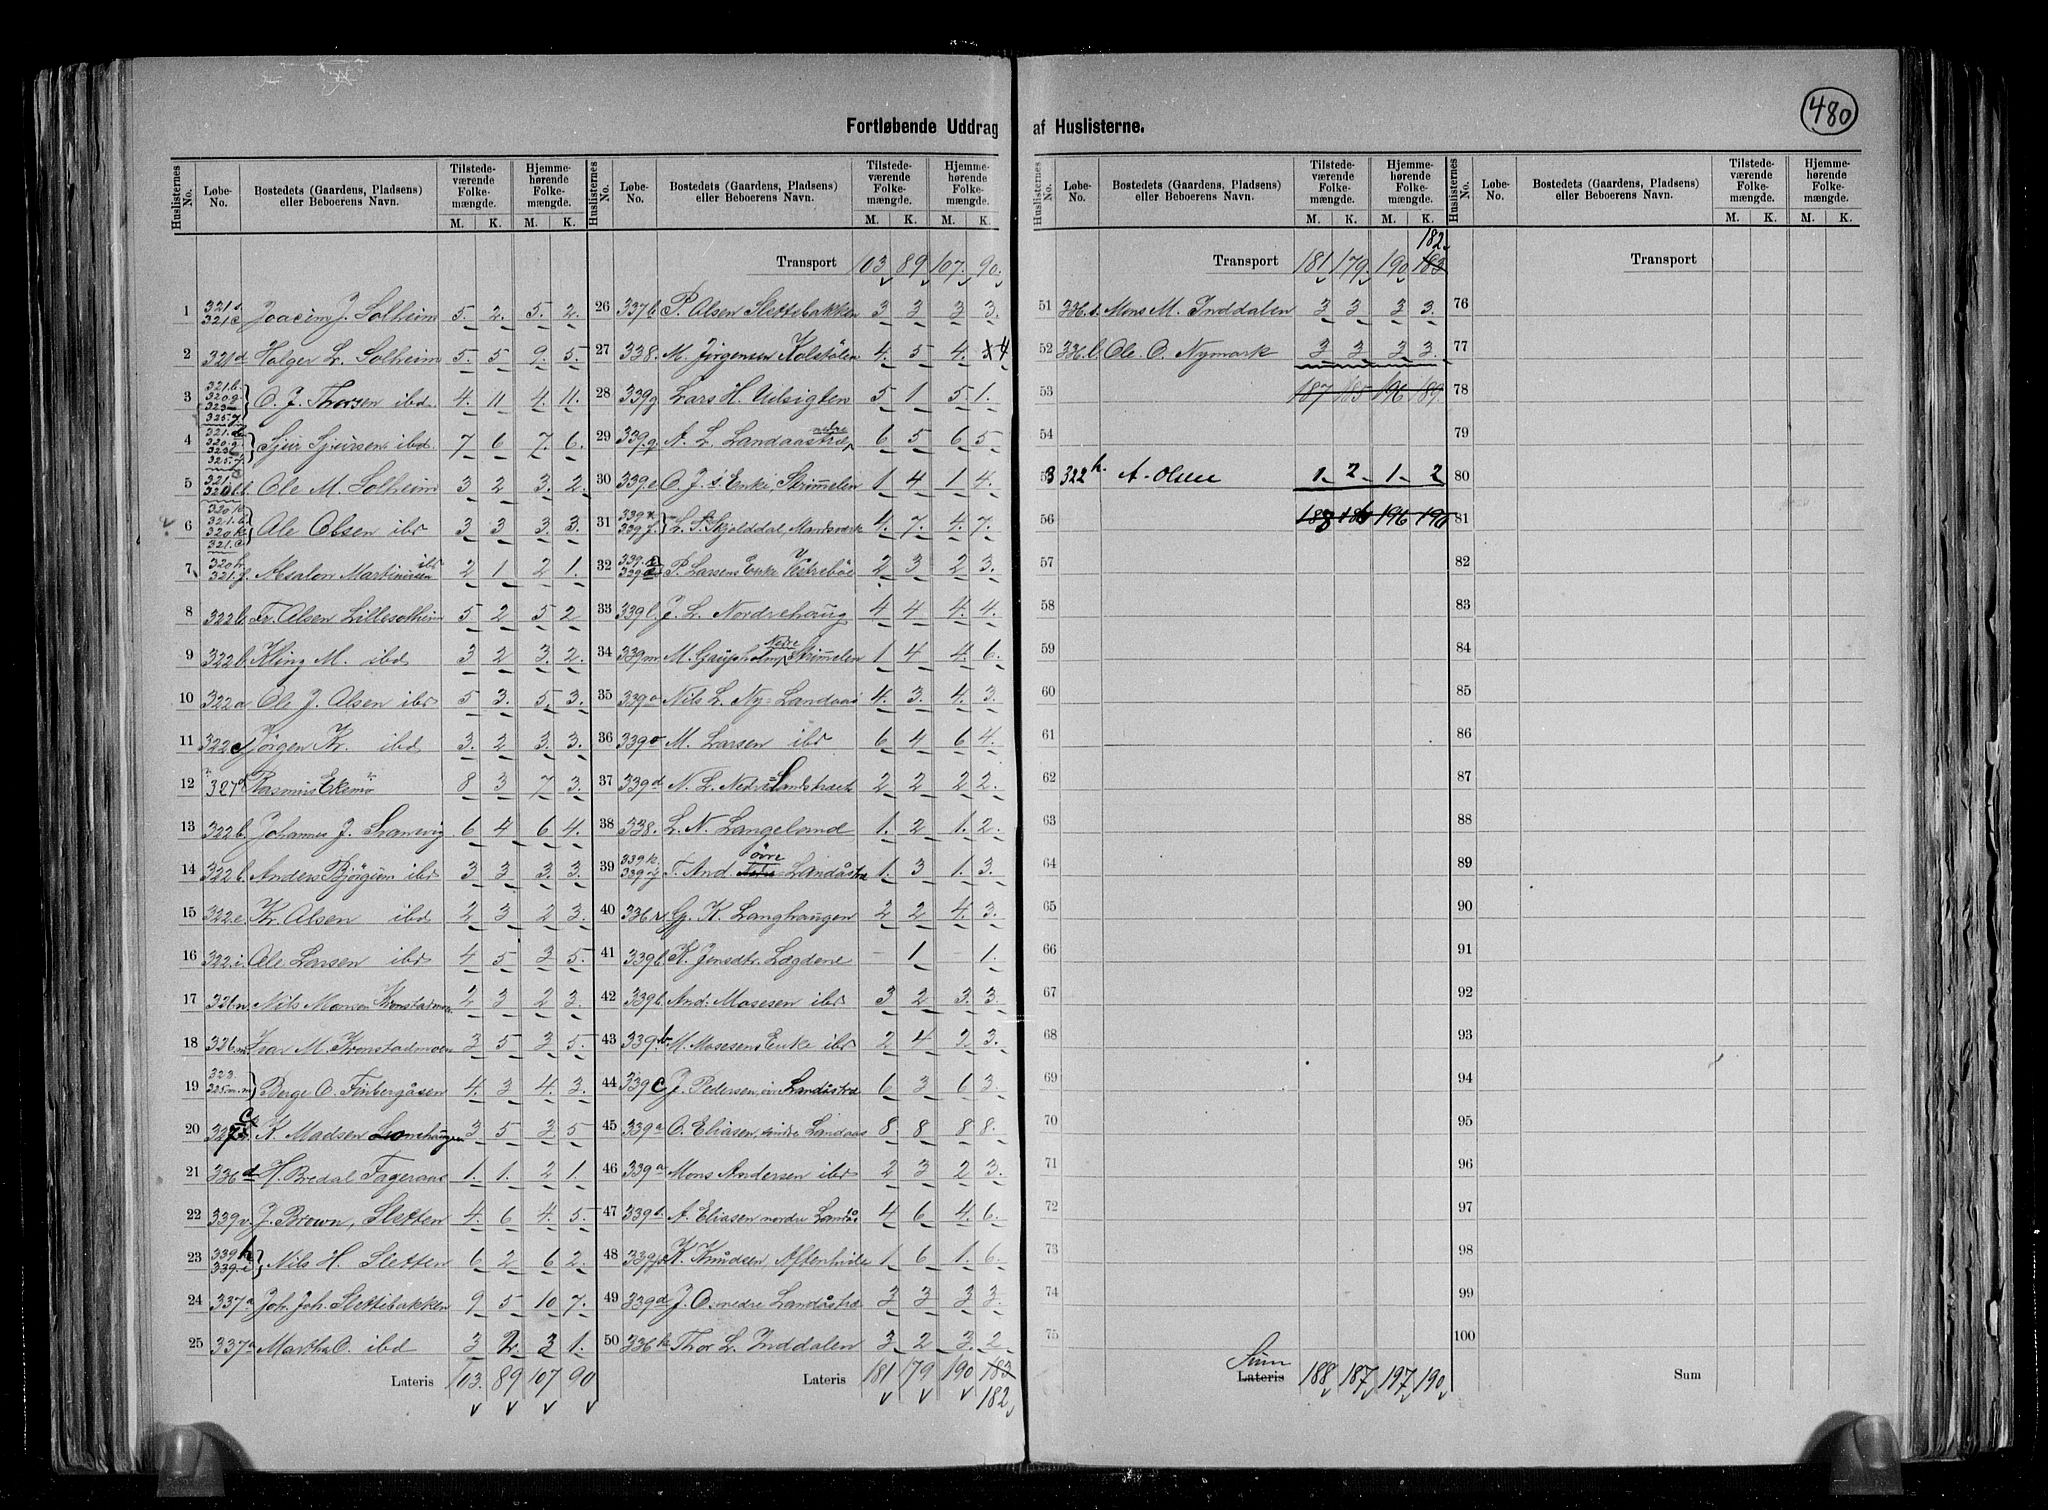 480
Fortløbende Uddrag af Huslisterne.
Huslisternes No. Løbe-No. Bostedets (Gaardens, Pladsens) eller Beboerens Navn. Tilstedeværende Folkemængde. M. K. Hjemmehørende Folkemængde. M. K.
1 321 321c Joacim J. Solheim 5. 2. 5. 2.
2 321d Holger L. Solheim 5. 5 9. 5.
3 321b. 320g O. J. Thorsen ibd 4. 11 4. 11.
4 Sjur Sjursen ibd 7 6 7. 6.
5 Ole M. Solheim 3 2 3. 2.
6 320k 321.b. 320k 321.c Ole Olsen ibd 3 3 3. 3.
7 321f Absalon Martinussen ibd 2 1 2 1.
8 322b Fr. Olsen Lillesolheim 5 2 5 2
9 322b. Kling M. ibd 3 2 3. 2.
10 322a Ole J. Olsen ibd 5 3. 5. 3.
11 322c Jørgen Kr. ibd 3. 2 3. 3.
12 327d Rasmus Ekemo 8 3 7 3.
13 322b. Johannes J. 6 4 6 4.
14 322b. Anders ibd 3 3 3. 3.
15 322.e. Kr. Olsen ibd 2 3 2 3.
16 322.i. Ole Larsen ibd 4 5 3 5.
17 326n Nils Monsen Kronstadmoen 2 3 2 3.
18 326m Ivar M. Kronstadmoen 3 5 3 5.
19 323. 325m.m Børge O. Finbergåsen 4. 3 4. 3.
20 K. Madsen 3 5 3 5
21 336d H. Bredal Fageraas 1. 1. 2 1.
22 339v. J. Brown, Sletten 4. 6 4. 5.
23 339h 339.i Nils H. Sletten 6 2 6 2.
24 337a Joh. Joh. Slettebakken 9 5 10 7.
25 337a Martha O. ibd 3 2. 3 1.
Lateris 103. 89 107 90
Huslisternes No. Løbe-No. Bostedets (Gaardens, Pladsens) eller Beboerens Navn. Tilstedeværende Folkemængde. M. K. Hjemmehørende Folkemængde. M. K.
Transport 103. 89 107. 90.
26 337b P. Olsen Slettebakken 3 3 3 3.
27 338. M. Jørgensen Kolstølen 4. 5 4. 4
28 339g Lars H. Udsigten 5 1 5 1.
29 339.g A. L. Landaastræ nedre 6 5 6 5
30 339e O. J.s Enke, Skrimmelen 1 4 1 4.
31 339k 339f. L. S. Skjolddal, Mandsverk 4. 7. 4. 7.
32 P. Larsens Enke Vestrebøe 2 3 2 3.
33 339l. J. L. Nordrehaug 4 4 4. 4.
34 339m M. Nedre Skrimmelen 1 4 4. 6.
35 339o Nils L. Ny-Landaas 4. 3. 4. 3.
36 339o M. Larsen ibd 6 4 6 4.
37 339d N. L. Nedre Landstraet 2 2 2 2.
38 338. L. N. Langeland 1. 2 1. 2.
39 339k. T. And. øvre Landåstræ 1. 3 1. 3.
40 336r Gj. K. Langhaugen 2 2 4. 3.
41 339b. K. Jensdtr. Lægdene – 1 – 1.
42 339b. And. Mosesen ibd 3 2 3. 3.
43 339b M. Mosesens Enke ibd 2 4 2 3.
44 339c J. Pedersen, Landåstræ 6 3 6 3.
45 339a O. Eliasen, Landaas 8 8 8 8.
46 339a Mons Andersen ibd 2 3 2 3.
47 339b. A. Eliasen nordre Landås 4 6 4. 6.
48 K. Knudsen Aftenhvile 1 6 1. 6.
49 339d J. O. nedre Landåstræ 3 3 3 3.
50 336k Thor L. Inddalen 3 2 3. 2
Lateris 181 179 190 183 182
Huslisternes No. Løbe-No. Bostedets (Gaardens, Pladsens) eller Beboerens Navn. Tilstedeværende Folkemængde. M. K. Hjemmehørende Folkemængde. M. K.
182
Transport 181 179. 190 183
51 336.s. Mons M. Inddalen 3 3 3 3.
52 336.l. Ole O. Nymark 3 3 3 3.
53 187 185 196 189.
54
55 322h. A. Olsen 1. 2 1. 2
56 188 186 196 190
57
58
59
60
61
62
63
64
65
66
67
68
69
70
71
72
73
74
75
Sum Lateris 188 187 197 190
Huslisternes No. Løbe-No. Bostedets (Gaardens, Pladsens) eller Beboerens Navn. Tilstedeværende Folkemængde. M. K. Hjemmehørende Folkemængde. M. K.
Transport
76
77
78
79
80
81
82
83
84
85
86
87
88
89
90
91
92
93
94
95
96
97
98
99
100
Sum